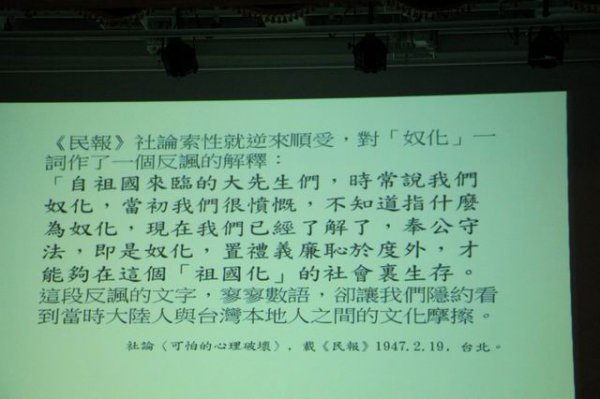 《民報》社論索性就逆來順受，對「奴化」一
詞作了一個反諷的解釋：
「自祖國來臨的大先生們，時常說我們
奴化，當初我們很憤慨，不知道指什麼
為奴化，現在我們已經了解了，奉公守
法，即是奴化，置禮義廉恥於度外，才
能夠在這個「祖國化」的社會裏生存。
這段反諷的文字，寥寥數語，卻讓我們隱約看
到當時大陸人與台灣本地人之間的文化摩擦。
社論〈可怕的心理破壞〉，載《民報》1947.2.19，台北。